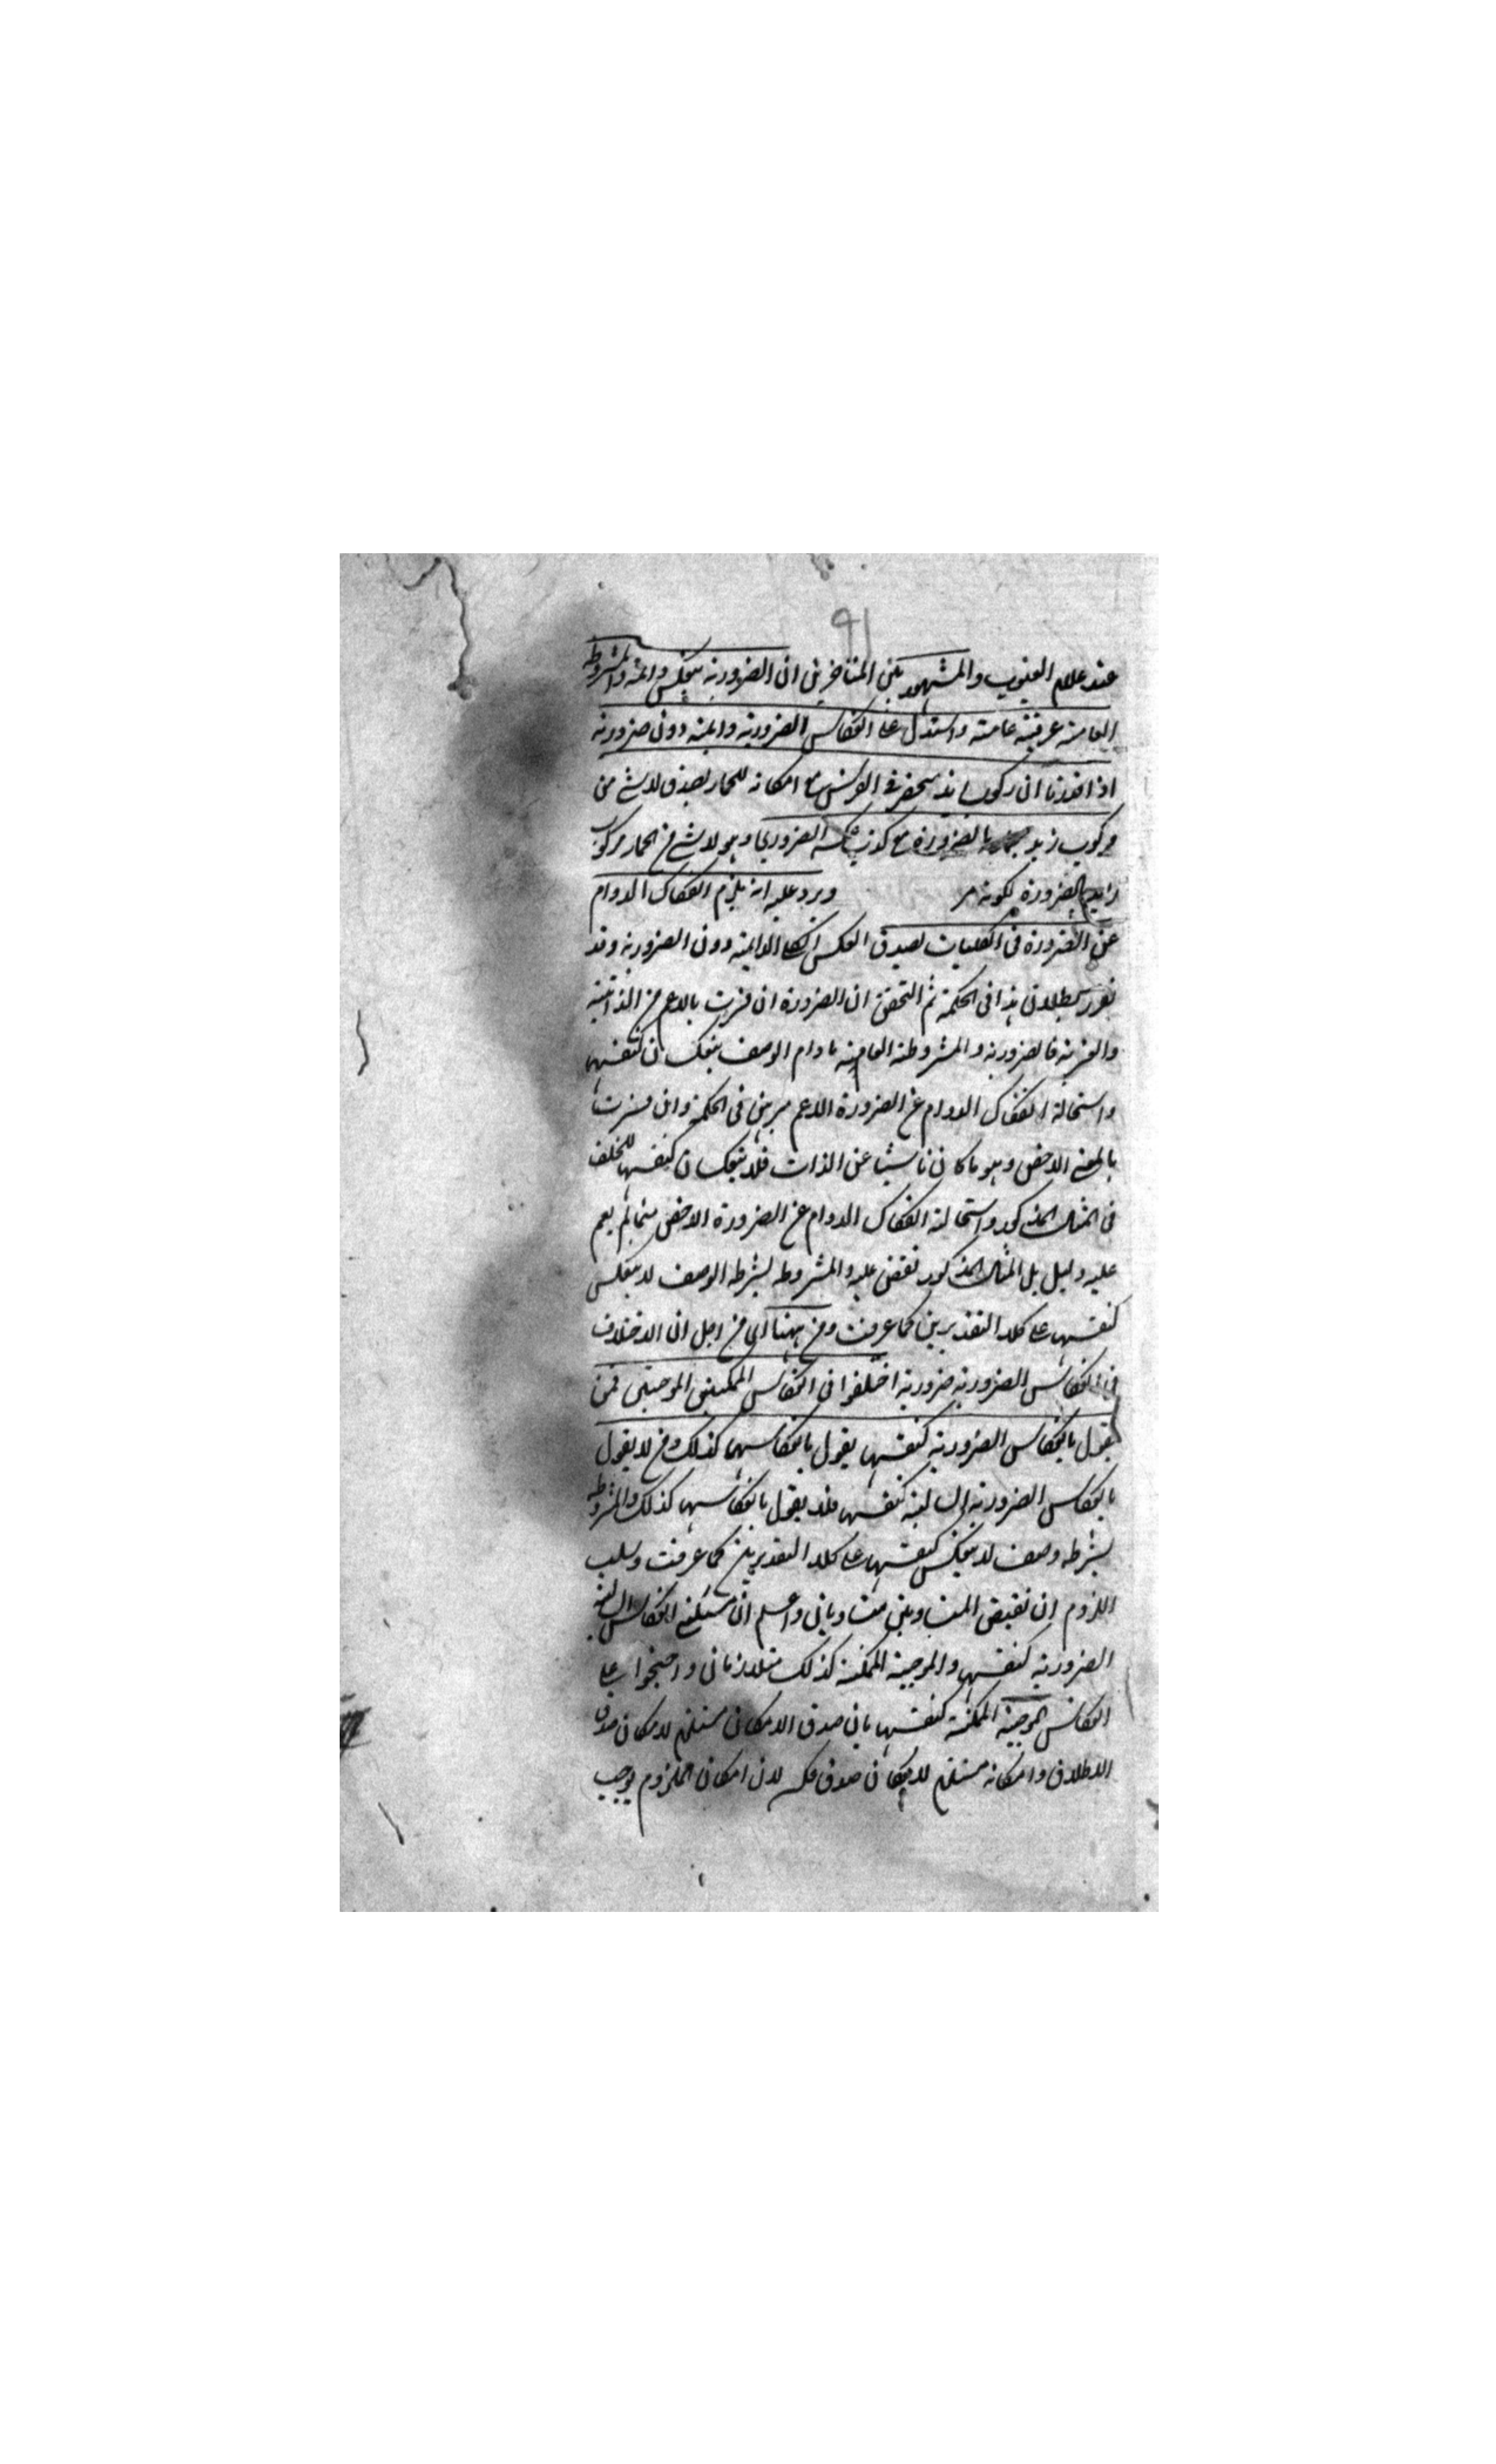 91
عند علام الغيوب والمشهور بين المتاخرين ان الضرورية تنعكس دائمة والمشروطة
العامة عرفية عامة واستدل على انعكاس الضرورية دائمة دون ضرورية
اذا اخذنا ان ركوب زيد منحصر في الفرس مع امكانه للحمار يصدق لا شئ من
مركوب زيد بحمار بالضرورة مع كذب عكسه الضروري وهو لا شئ من الحمار مركوب
زيد بالضرورة لكونه مر ويرد عليه انه يلزم انفكاك الدوام
عن الضرورة في الكليات لصدق العكس الدائمة دون الضرورية وقد
تقرر بطلان هذا في الحكمة ثم التحقيق ان الضرورة ان فسرت بالاعم من الذاتية
والغيرية فالضرورية والمشروطة العامة مادام الوصف ينعكسان كنفسها
واستحالة انفكاك الدوام عن الضرورة الاعم مبرهن في الحكمة وان فسرت
بالمعنى الاخص وهو ما كان ناشيا عن الذات فلا ينعكسان كنفسها للخلف
في المثال المذكور واستحالة انفكاك الدوام عن الضرورة الاخص مما لم يقم
عليه دليل بل المثال المذكور نقض عليه والمشروطة بشرط الوصف لا ينعكس
كنفسها على كلا التقديرين كما عرفت ومن ههنا اى من اجل ان الاختلاف
في انعكاس الضرورية ضرورية اختلفوا في انعكاس الممكنتين الموجبتين فمن
يقول بانعكاس الضرورية كنفسها يقول بانعكاسهما كذلك ومن لا يقول
بانعكاس الضرورية السالبة كنفسها فلا يقول بانعكاسهما كذلك والمشروطة
بشرط وصف لا ينعكس كنفسها على كلا التقديرين كما عرفت وسلب
اللزوم ان نقيض المتساويين متساويان واعلم ان مسئلتي انعكاس السالبة
الضرورية كنفسها والموجبة الممكنة كذلك متلازمان واحتجوا على
انعكاس الموجبة الممكنة كنفسها بان صدق الامكان مستلزم لامكان صدق
الاطلاق وامكانه مستلزم لامكان صدق عكسه لان امكان الملزوم يوجب